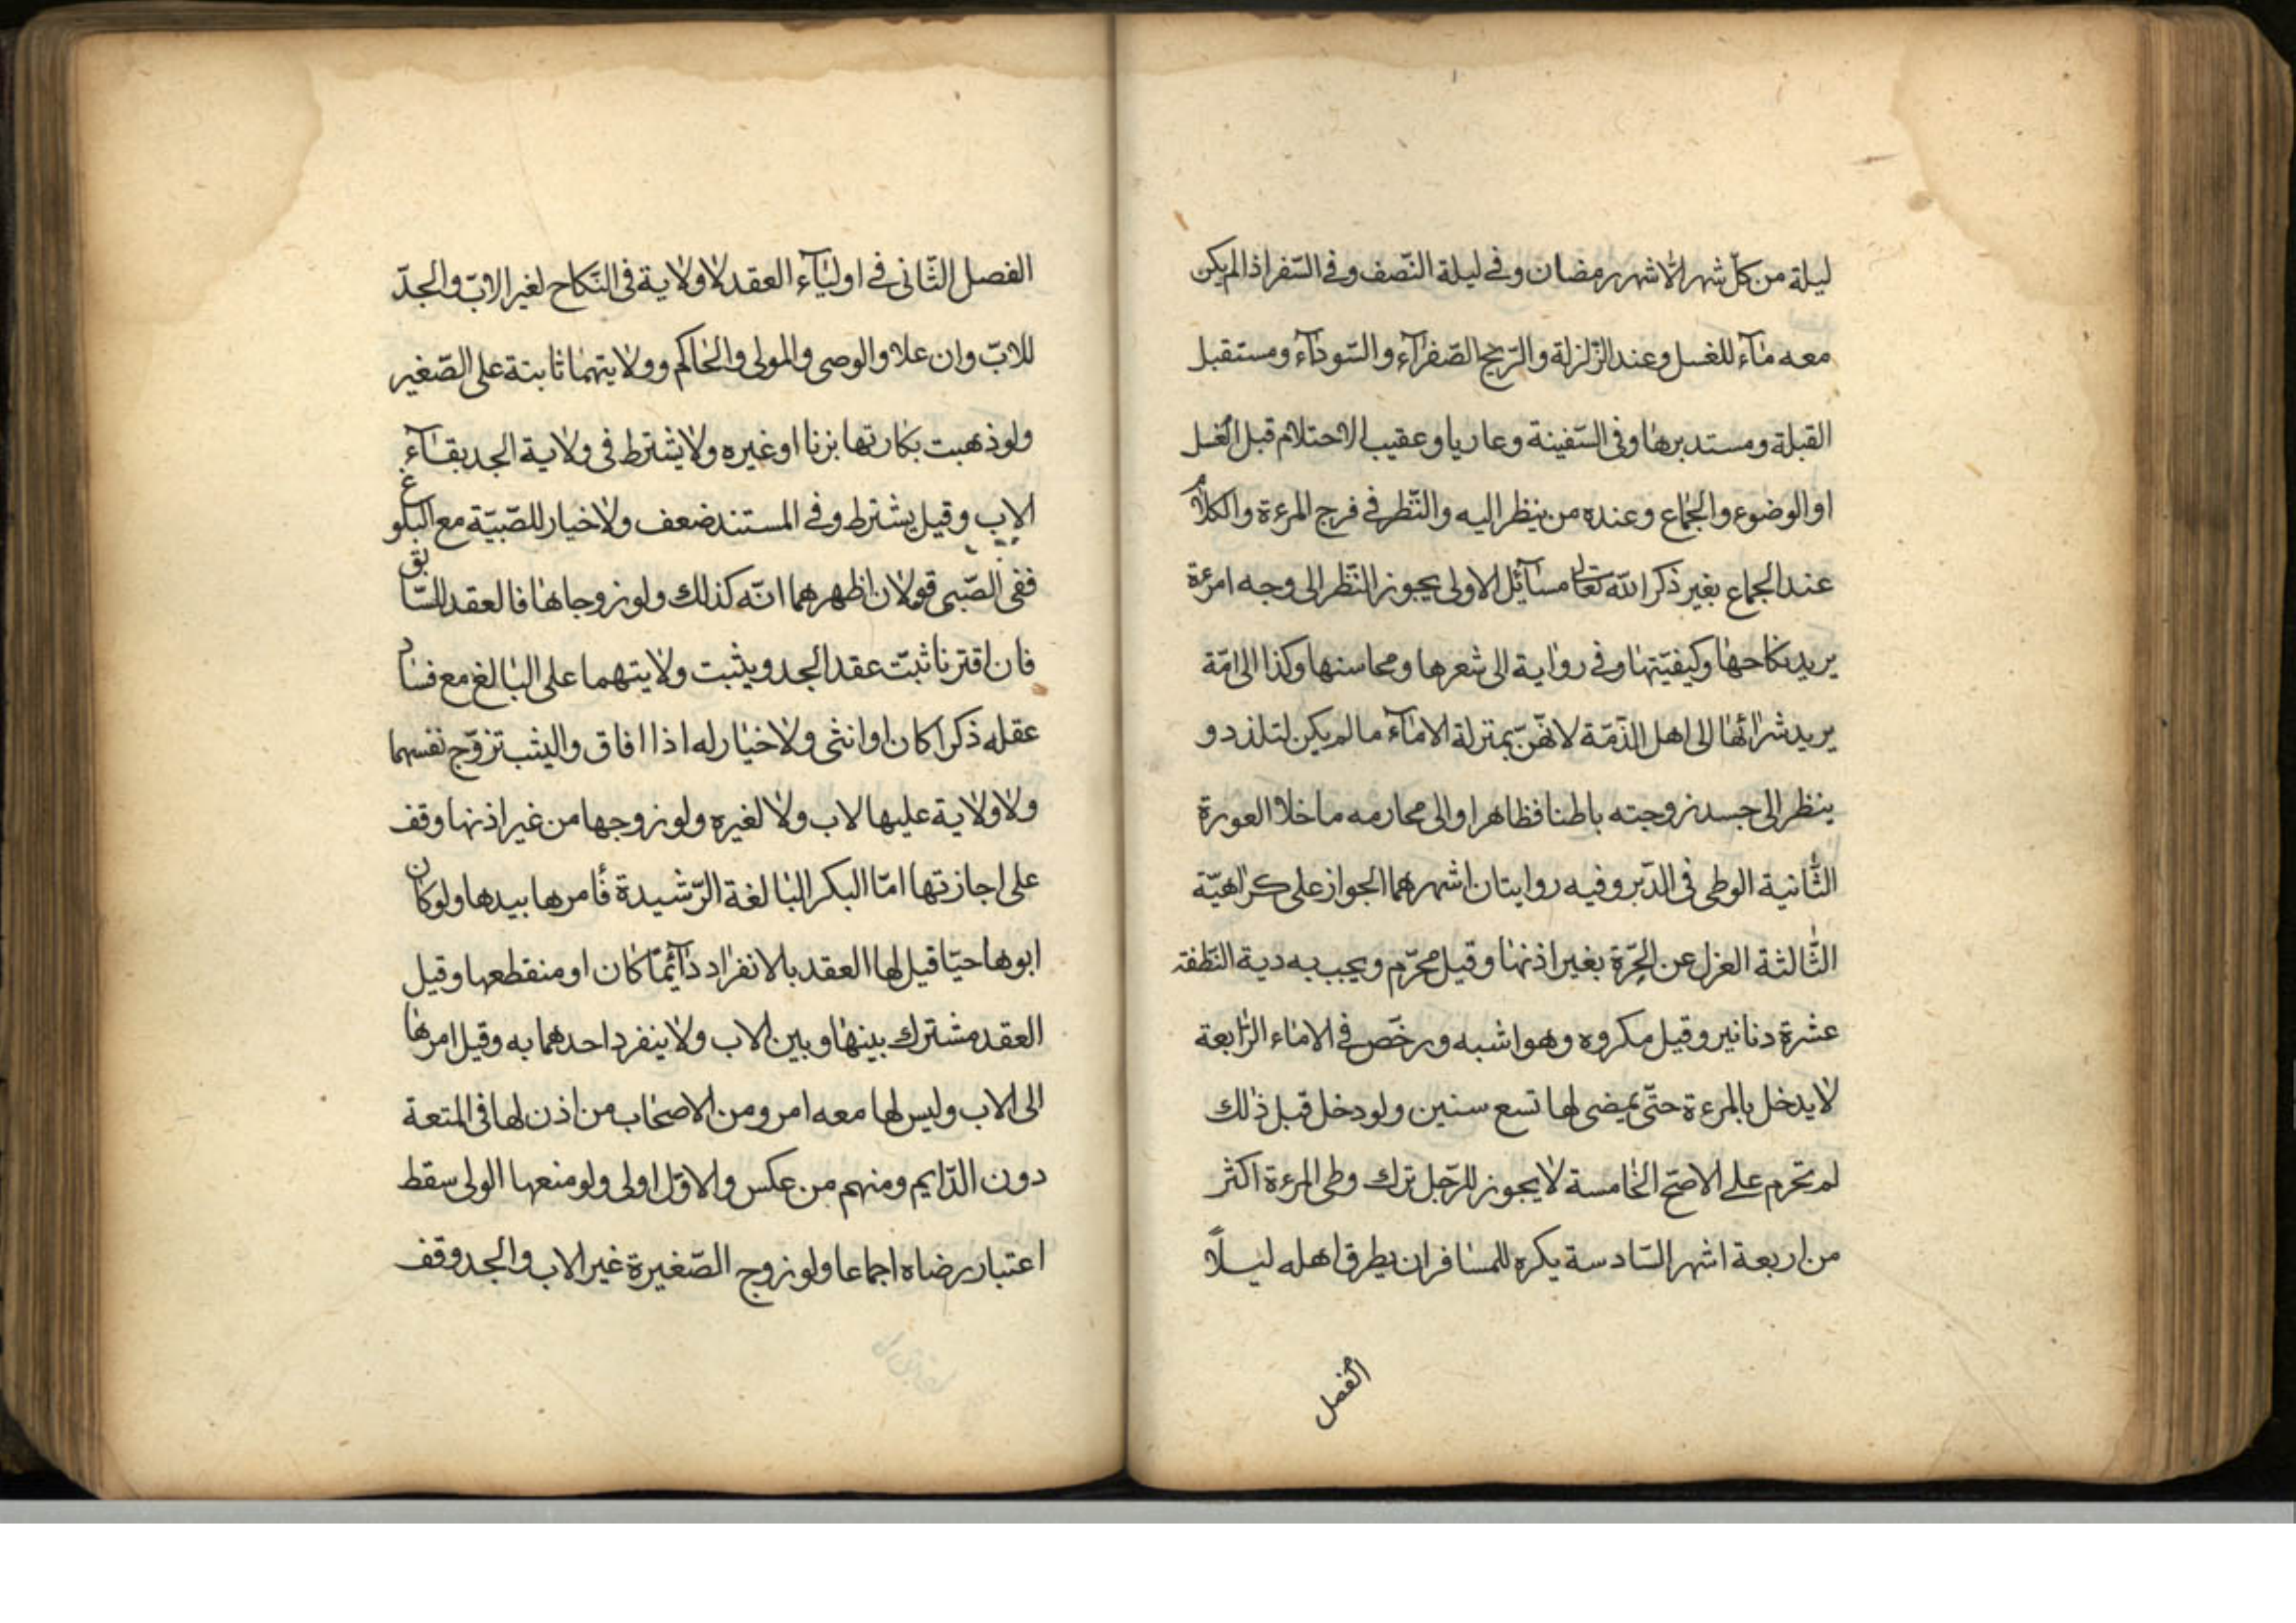 ليلة من كلّ شهر الّا شهر رمضان وفي ليلة النّصف وفي السّفر اذا لم يكن
معه ماۤء للغسل وعند الزّلزلة والرّيح الصّفراۤء والسّوداۤء ومستقبل
القبلة ومستدبرها وفى السّفينة وعاريا وعقيب الاحتلام قبل الغسل
او الوضوء والجماع وعنده من ينظر اليه والنّظر في فرج المرءة والكلام
عند الجماع بغير ذكر اللّه تعالى مسآئل الاولى يجوز النّظر الى وجه امرءة
يريد نكاحها وكيفيّتها وفي رواية الى شعرها ومحاسنها وكذا الى امّة
يريد شرائها الى اهل الذّمّة لانهّنّ بمنزلة الاماۤء مالم يكن لتلذذ و
ينظر الى جسد زوجته باطنا فظاهرا والى محارمه ما خلا العورة
الثّانية الوطى فى الدّبر وفيه روايتان اشهرهما الجواز على كراهيّة
الثّالثة العزل عن الحرّة بغير اذنها وقيل محرّم ويجب به دية النّطفة
عشرة دنانير وقيل مكروه وهو اشبه ورخّص في الاماء الرّابعة
لا يدخل بالمرءة حتّى يمضى لها تسع سنين ولو دخل قبل ذلك
لم تحرم على الاصحّ الخامسة لا يجوز للرّجل ترك وطى المرءة اكثر
من اربعة اشهر السّادسة يكره للمسافر ان يطرق اهله ليلاً
الفصل
الفصل الثّانى في اولياۤء العقد لا ولاية فى النّكاح لغير الابّ والجدّ
للابّ وان علا والوصى والمولى والحاكم وولايتهما ثابتة على الصّغير
ولو ذهبت بكارتها بزنا او غيره ولا يشترط فى ولاية الجد بقاۤء
الاب وقيل يشترط وفي المستند ضعف ولا خيار للصّبيّة مع البلوغ
ففى الصّبى قولان اظهرهما انّه كذلك ولو زوجاها فالعقد للسّابق
فان اقترنا ثبتّ عقد الجد ويثبت ولايتهما على البالغ مع فساد
عقله ذكرا كان او انثى ولا خيار له اذا افاق والثيب تزوّج نفسها
ولا ولاية عليها لاب ولا لغيره ولو زوجها من غير اذنها وقف
على اجازتها امّا البكر البالغة الرّشيدة فأمرها بيدها ولو كان
ابوها حيّا قيل لها العقد بالانفراد دآئمّا كان او منقطعها وقيل
العقد مشترك بينها وبين الاب ولا ينفرد احدهما به وقيل امرها
الى الاب وليس لها معه امر ومن الاصحاب من اذن لها فى المتعة
دون الدّايم ومنهم من عكس والاوّل اولى ولو منعها الولى سقط
اعتبار رضاه اجماعا ولو زوج الصّغيرة غير الاب والجد وقف